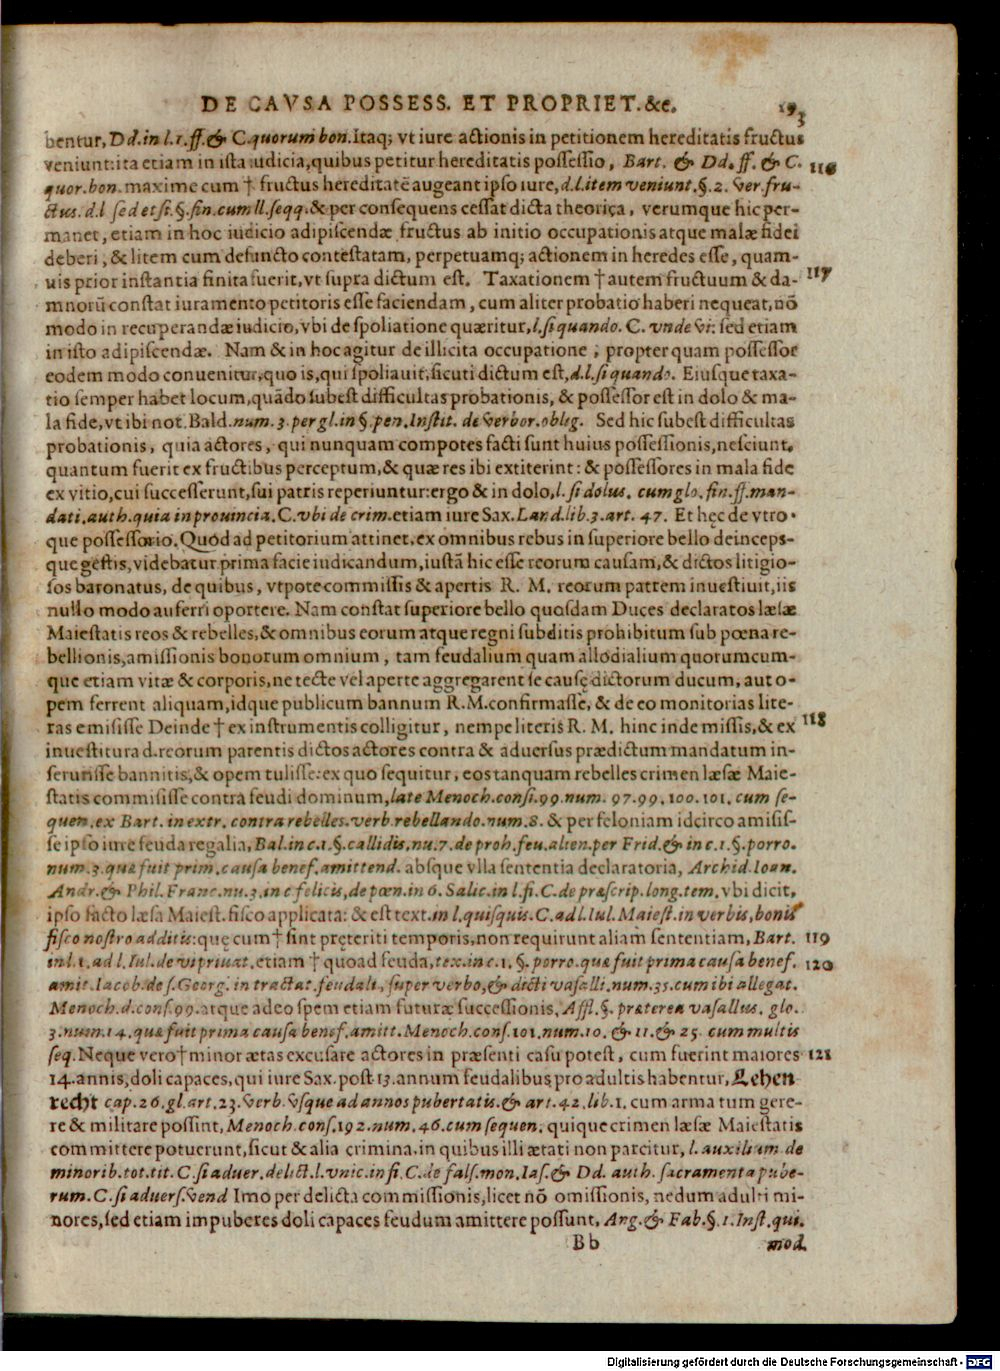 DE CAVSA POSSESS. ET PROPRIET. &c. 193
bentur, Dd. in l. 1. ff. & C. quorum bon. Itaq; vt iure actionis in petitionem hereditatis fructus
veniunt: ita etiam in ista iudicia, quibus petitur hereditatis possessio, Bart. & Dd. ff. & C. 116
quor. bon. maxime cum † fructus hereditatē augeant ipso iure, d. l. item veniunt. §. 2. ver. fru-
ctus. d. l sed et si. §. fin. cum ll. seqq. & per consequens cessat dicta theorica, verumque hic per-
manet, etiam in hoc iudicio adipiscendæ fructus ab initio occupationis atque malæ fidei
deberi, & litem cum defuncto contestatam, perpetuamq; actionem in heredes esse, quam-
uis prior instantia finita fuerit, vt supra dictum est. Taxationem † autem fructuum & da- 117
mnorū constat iuramento petitoris esse faciendam, cum aliter probatio haberi nequeat, nō
modo in recuperandæ iudicio, vbi de spoliatione quæritur, l. si quando. C. vnde vi: sed etiam
in isto adipiscendæ. Nam & in hoc agitur de illicita occupatione, propter quam possessor
eodem modo conuenitur, quo is, qui spoliauit, sicuti dictum est, d. l. si quando. Eiusque taxa-
tio semper habet locum, quādo subest difficultas probationis, & possessor est in dolo & ma-
la fide, vt ibi not. Bald. num. 3. per gl. in §. pen. Instit. de verbor. oblig. Sed hic subest difficultas
probationis, quia actores, qui nunquam compotes facti sunt huius possessionis, nesciunt,
quantum fuerit ex fructibus perceptum, & quæ res ibi extiterint: & possessores in mala fide
ex vitio, cui successerunt, sui patris reperiuntur: ergo & in dolo, l. si dolus. cum glo. fin. ff. man-
dati. auth. quia in prouincia. C. vbi de crim. etiam iure Sax. Land. lib. 3. art. 47. Et hęc de vtro-
que possessorio. Quod ad petitorium attinet, ex omnibus rebus in superiore bello deinceps-
que gestis, videbatur prima facie iudicandum, iustā hic esse reorum causam, & dictos litigio-
sos baronatus, de quibus, vtpote commissis & apertis R. M. reorum patrem inuestiuit, iis
nullo modo auferri oportere. Nam constat superiore bello quosdam Duces declaratos læsæ
Maiestatis reos & rebelles, & omnibus eorum atque regni subditis prohibitum sub pœna re-
bellionis, amissionis bonorum omnium, tam feudalium quam allodialium quorumcum-
que etiam vitæ & corporis, ne tecte vel aperte aggregarent se causę dictorum ducum, aut o-
pem ferrent aliquam, idque publicum bannum R. M. confirmasse, & de eo monitorias lite-
ras emisisse Deinde † ex instrumentis colligitur, nempe literis R. M. hinc inde missis, & ex 118
inuestitura d. reorum parentis dictos actores contra & aduersus prædictum mandatum in-
seruisse bannitis, & opem tulisse: ex quo sequitur, eos tanquam rebelles crimen læsæ Maie-
statis commisisse contra feudi dominum, late Menoch. consi. 99. num. 97. 99. 100. 101. cum se-
quen. ex Bart. in extr. contra rebelles. verb. rebellando. num. 8. & per feloniam idcirco amisis-
se ipso iure feuda regalia, Bal. in c. 1. §. callidis, nu. 7. de proh. feu. alien. per Frid. & in c. 1. §. porro.
num. 3. quæ fuit prim. causa benef. amittend. absque vlla sententia declaratoria, Archid. Ioan.
Andr. & Phil. Franc. nu. 3. in c felicis, de pœn. in 6. Salic. in l. fi. C. de præscrip. long. tem. vbi dicit,
ipso facto læsa Maiest. fisco applicata: & est text. in l. quisquis. C. ad l. Iul. Maiest. in verbis, bonis
fisco nostro additis: quę cum † sint pręteriti temporis, non requirunt aliam sententiam, Bart. 119
in l. 1. ad l. Iul. de vi priuat. etiam † quoad feuda, tex. in c. 1. §. porro. quæ fuit prima causa benef. 120
amit. Iacob. de s. Georg. in tractat. feudali, super verbo, & dicti vasalli. num. 35. cum ibi allegat.
Menoch. d. cons. 99. atque adeo spem etiam futuræ successionis, Affl. §. præterea vasallus. glo.
3. num. 14. quæ fuit prima causa benef. amitt. Menoch. cons. 101. num. 10. & 11. & 25. cum multis
seq. Neque vero † minor ætas excusare actores in præsenti casu potest, cum fuerint maiores 121
14. annis, doli capaces, qui iure Sax. post 13. annum feudalibus pro adultis habentur, Lehen
recht cap. 26. gl. art. 23. verb. vsque ad annos pubertatis. & art. 42. lib. 1. cum arma tum gere-
re & militare possint, Menoch. cons. 192. num. 46. cum sequen. quique crimen læsæ Maiestatis
committere potuerunt, sicut & alia crimina, in quibus illi ætati non parcitur, l. auxilium. de
minorib. tot. tit. C. si aduer. delict. l. vnic. in fi. C. de fals. mon. Ias. & Dd. auth. sacramenta pube-
rum. C. si aduers. vend Imo per delicta commissionis, licet nō omissionis, nedum adulti mi-
nores, sed etiam impuberes doli capaces feudum amittere possunt, Arg. & Fab. §. 1. Inst. qui.
Bb mod.
Digitalisierung gefördert durch die Deutsche Forschungsgemeinschaft - DFG